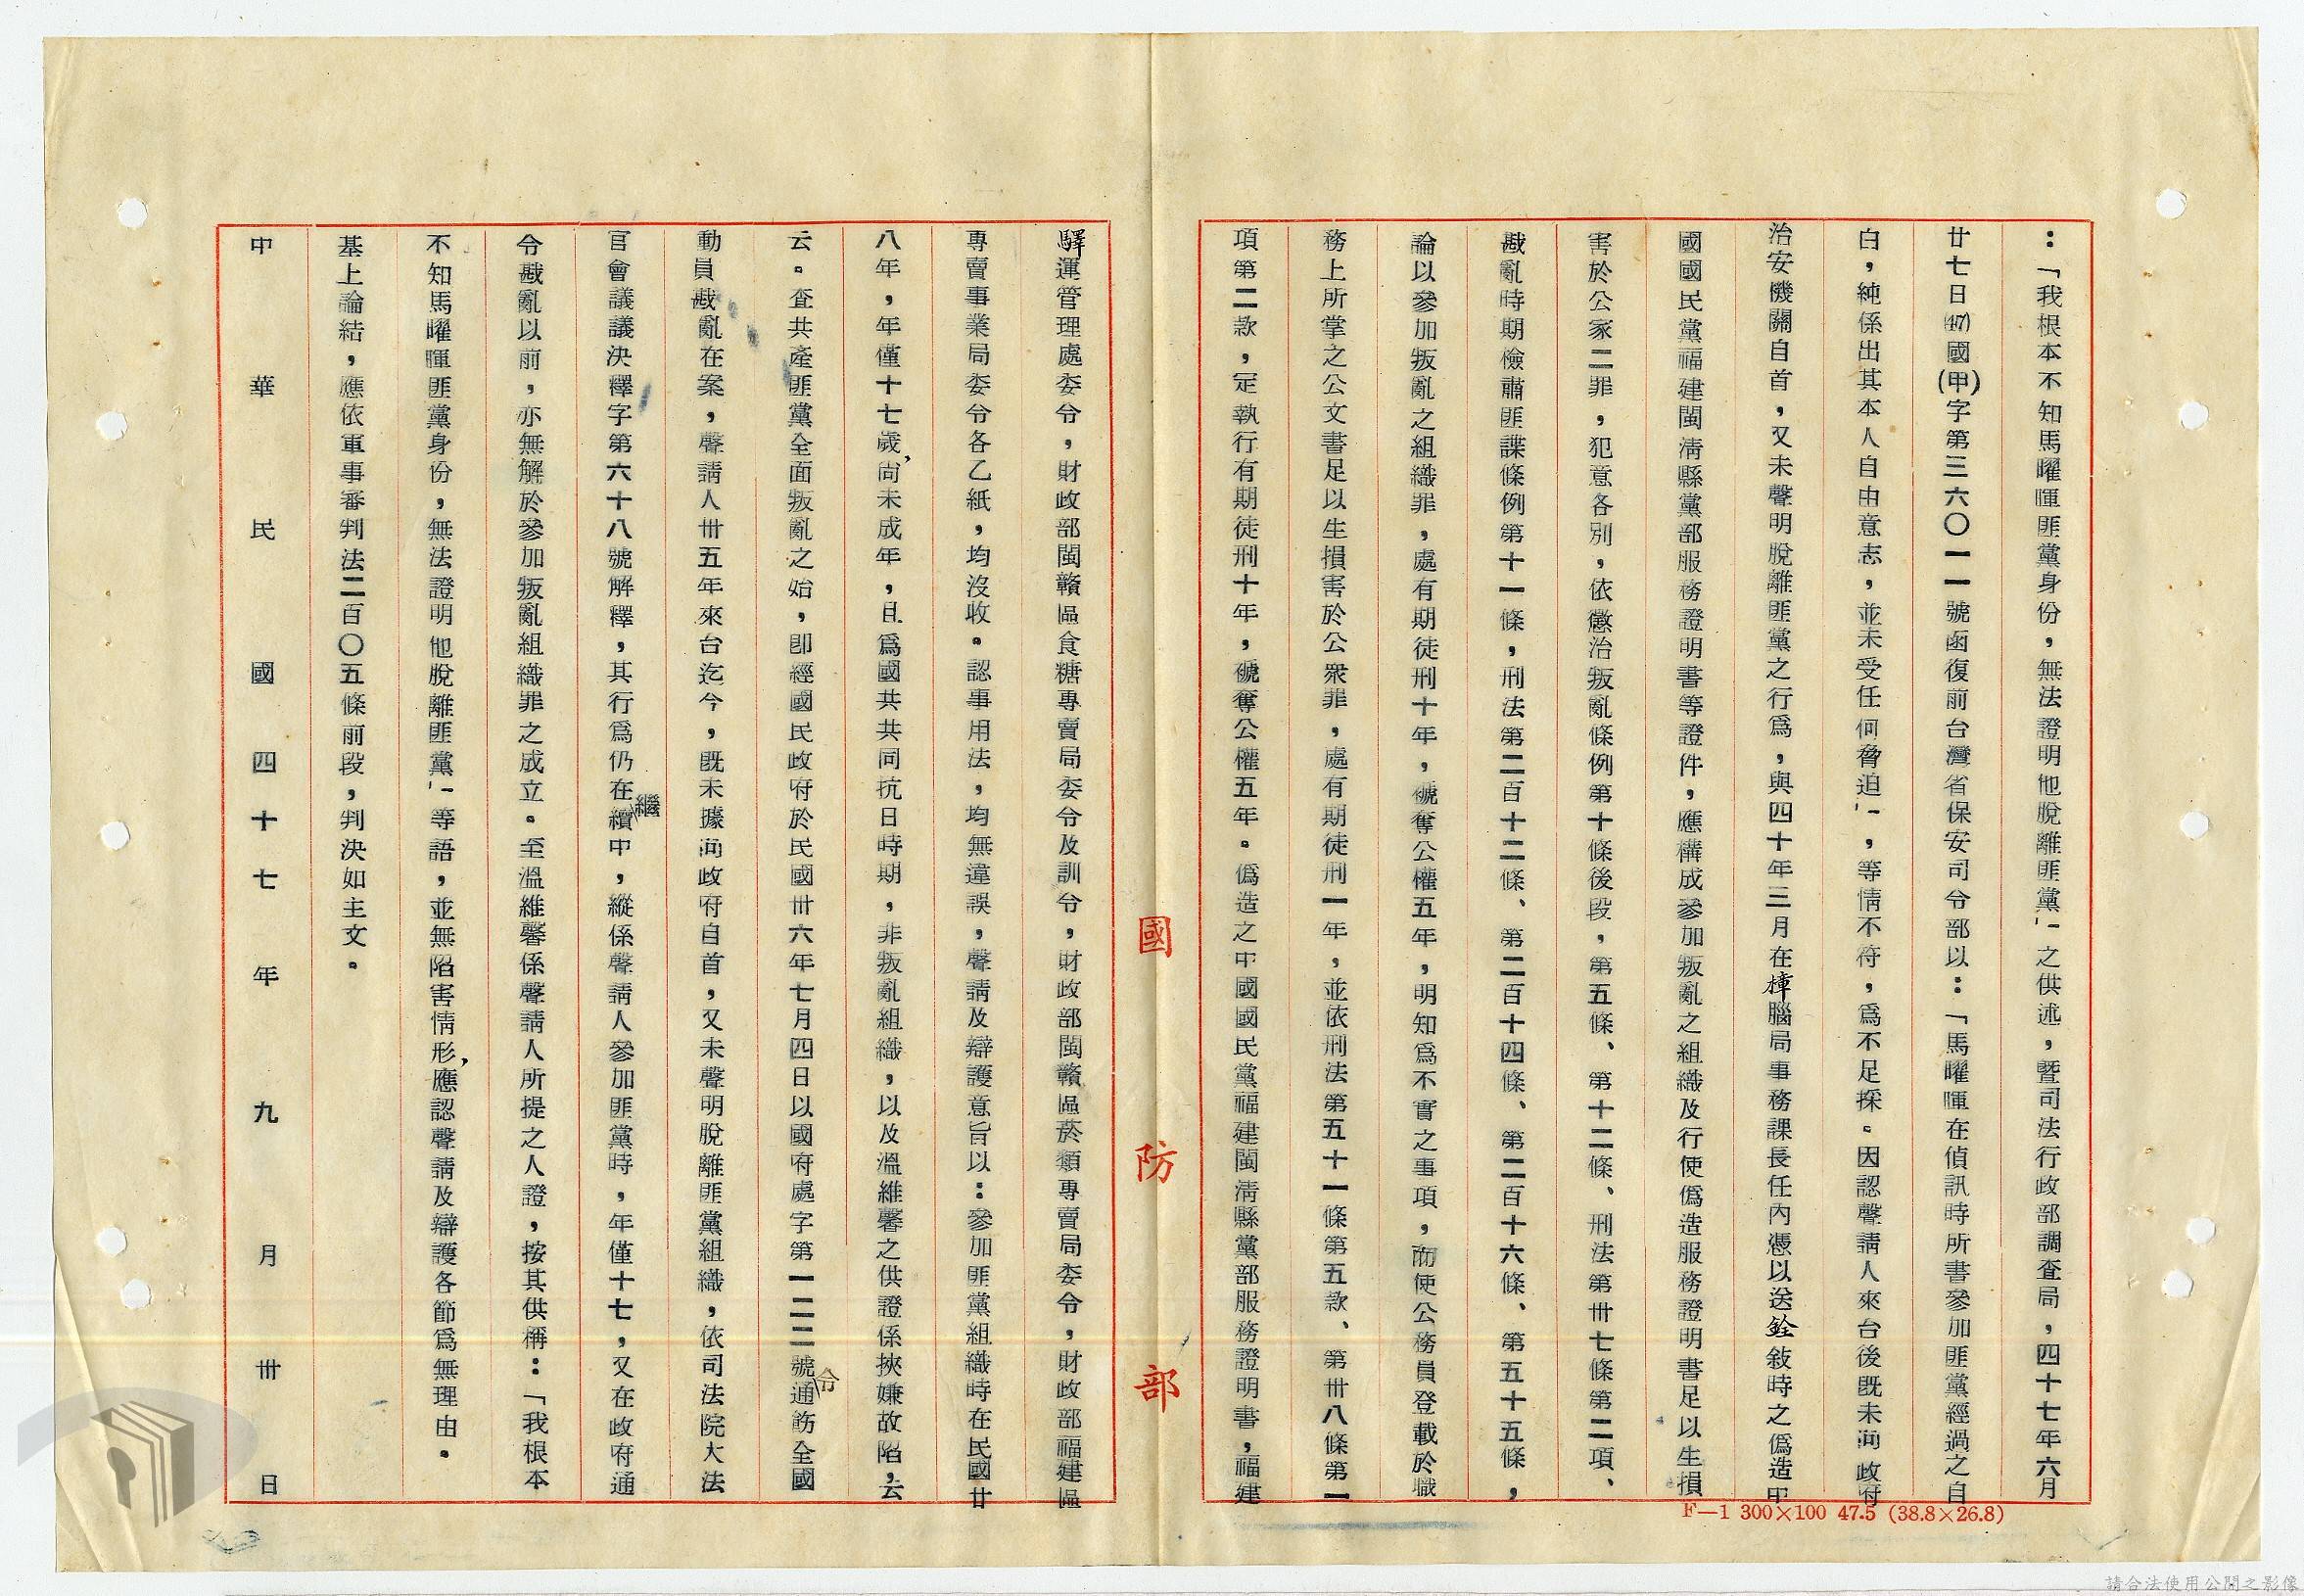 ：「我根本不知馬曜暉匪黨身份，無法證明他脫離匪黨」之供述，暨司法行政部調查局，四十七年六月
廿七日(47)國(甲)字第三六〇一一號函復前台灣省保安司令部以：「馬曜暉在偵訊時所書參加匪黨經過之自
白，純係出其本人自由意志，並未受任何脅迫」，等情不符，爲不足採。因認聲請人來台後既未向政府
治安機關自首，又未聲明脫離匪黨之行爲，與四十年三月在樟腦局事務課長任內憑以送銓敍時之僞造中
國國民黨福建閩淸縣黨部服務證明書等證件，應構成參加叛亂之組織及行使僞造服務證明書足以生損
害於公家二罪，犯意各別，依懲治叛亂條例第十條後段，第五條、第十二條、刑法第卅七條第二項、
戡亂時期檢肅匪諜條例第十一條，刑法第二百十二條、第二百十四條、第二百十六條、第五十五條，
論以參加叛亂之組織罪，處有期徒刑十年，褫奪公權五年，明知爲不實之事項，而使公務員登載於職
務上所掌之公文書足以生損害於公眾罪，處有期徒刑一年，並依刑法第五十一條第五款、第卅八條第一
項第二款，定執行有期徒刑十年，褫奪公權五年。僞造之中國國民黨福建閩淸縣黨部服務證明書，福建
國防部
驛運管理處委令，財政部閩贛區食糖專賣局委令及訓令，財政部閩贛區菸類專賣局委令，財政部福建區
專賣事業局委令各乙紙，均沒收。認事用法，均無違誤，聲請及辯護意旨以：參加匪黨組織時在民國廿
八年，年僅十七歲，尚未成年，且爲國共共同抗日時期，非叛亂組織，以及溫維馨之供證係挾嫌故陷，云
云。查共產匪黨全面叛亂之始，卽經國民政府於民國卅六年七月四日以國府處字第一二二號通令飭全國
動員戡亂在案，聲請人卅五年來台迄今，既未據向政府自首，又未聲明脫離匪黨組織，依司法院大法
官會議議決釋字第六十八號解釋，其行爲仍在繼續中，縱係聲請人參加匪黨時，年僅十七，又在政府通
令戡亂以前，亦無解於參加叛亂組織罪之成立。至溫維馨係聲請人所提之人證，按其供稱：「我根本
不知馬曜暉匪黨身份，無法證明他脫離匪黨」等語，並無陷害情形，應認聲請及辯護各節爲無理由。
基上論結，應依軍事審判法二百〇五條前段，判決如主文。
中華民國四十七年九月卅日
F—1 300×100 47.5 (38.8×26.8)
請合法使用公開之影像